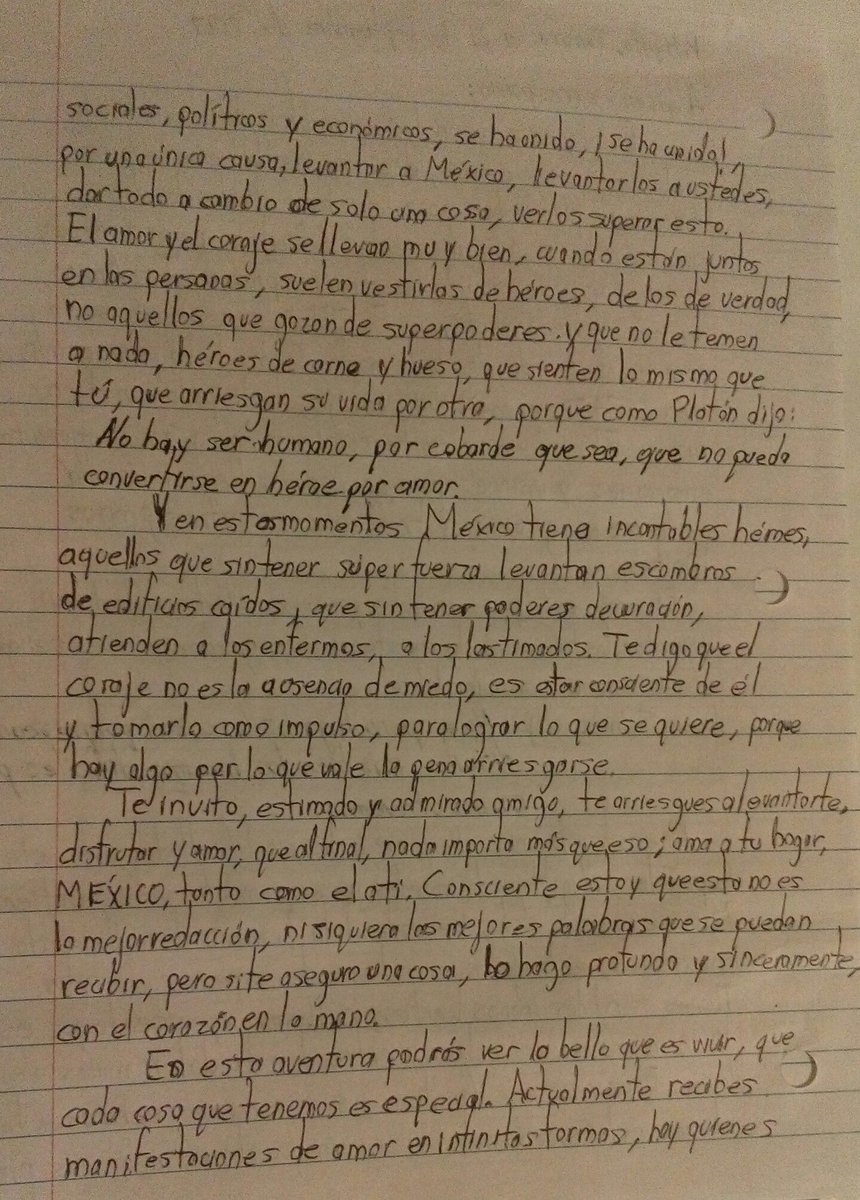 sociales, políticos y económicos, se ha unido, ¡se ha unido!,
por una única causa, levantar a México, levantarlos a ustedes,
dar todo a cambio de solo una cosa, verlos superar esto.
El amor y el coraje se llevan muy bien, cuando están juntos
en las personas, suelen vestirlas de héroes, de los de verdad,
no aquellos que gozan de superpoderes. y que no le temen
a nada, héroes de carne y hueso, que sienten lo mismo que
tú, que arriesgan su vida por otra, porque como Platón dijo:
No hay ser humano, por cobarde que sea, que no pueda
convertirse en héroe por amor.
Y en estos momentos México tiene incontables héroes,
aquellos que sin tener súper fuerza levantan escombros
de edificios caídos, que sin tener poderes de curación,
atienden a los enfermos, a los lastimados. Te digo que el
coraje no es la ausencia de miedo, es estar consciente de él
y tomarlo como impulso, para lograr lo que se quiere, porque
hay algo por lo que vale la pena arriesgarse.
Te invito, estimado y admirado amigo, te arriesgues a levantarte,
disfrutar y amar, que al final, nada importa más que eso; ama a tu hogar,
MÉXICO, tanto como el a ti. Consciente estoy que esta no es
la mejor redacción, ni siquiera las mejores palabras que se puedan
recibir, pero si te aseguro una cosa, lo hago profundo y sinceramente,
con el corazón en la mano.
En esta aventura podrás ver lo bello que es vivir, que
cada cosa que tenemos es especial. Actualmente recibes
manifestaciones de amor en infinitas formas, hay quienes